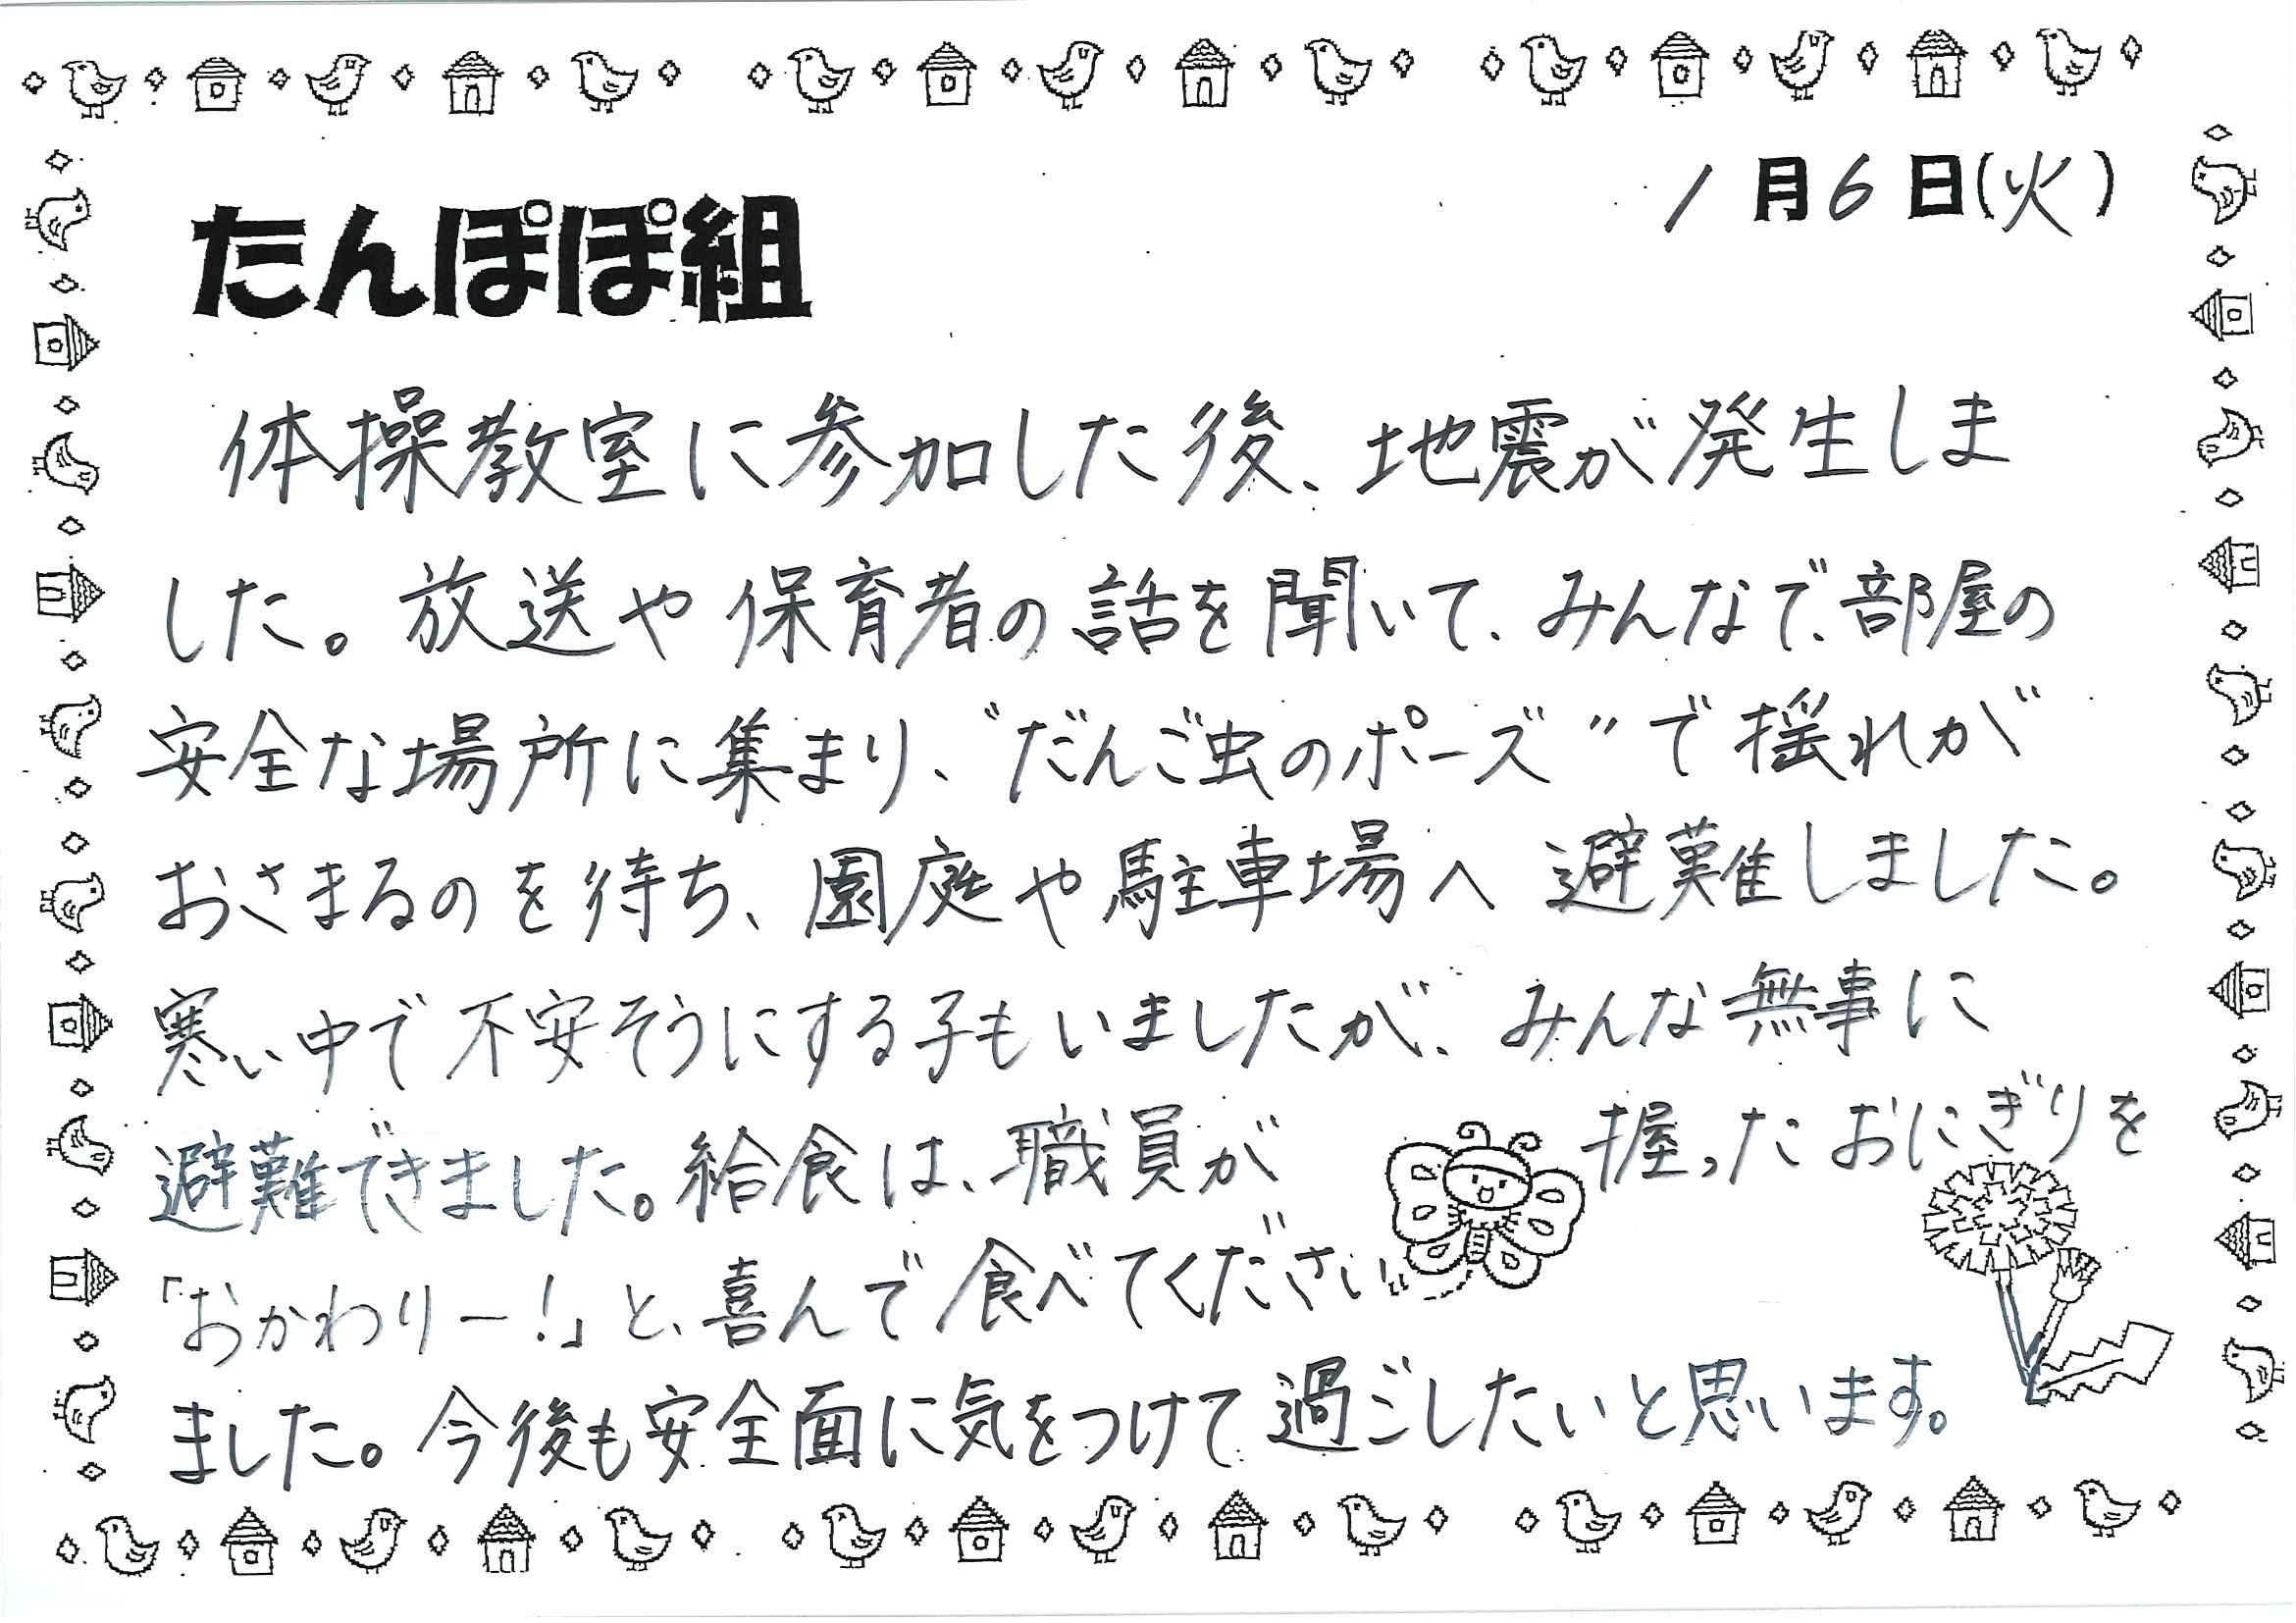 1月6日(火)
たんぽぽ組
体操教室に参加した後、地震が発生しま
した。放送や保育者の話を聞いて、みんなで、部屋の
安全な場所に集まり、“だんご虫のポーズ”で揺れが
おさまるのを待ち、園庭や駐車場へ避難しました。
寒い中で不安そうにする子もいましたが、みんな無事に
避難できました。給食は、職員が握ったおにぎりを
「おかわりー!」と、喜んで食べてください
ました。今後も安全面に気をつけて過ごしたいと思います。